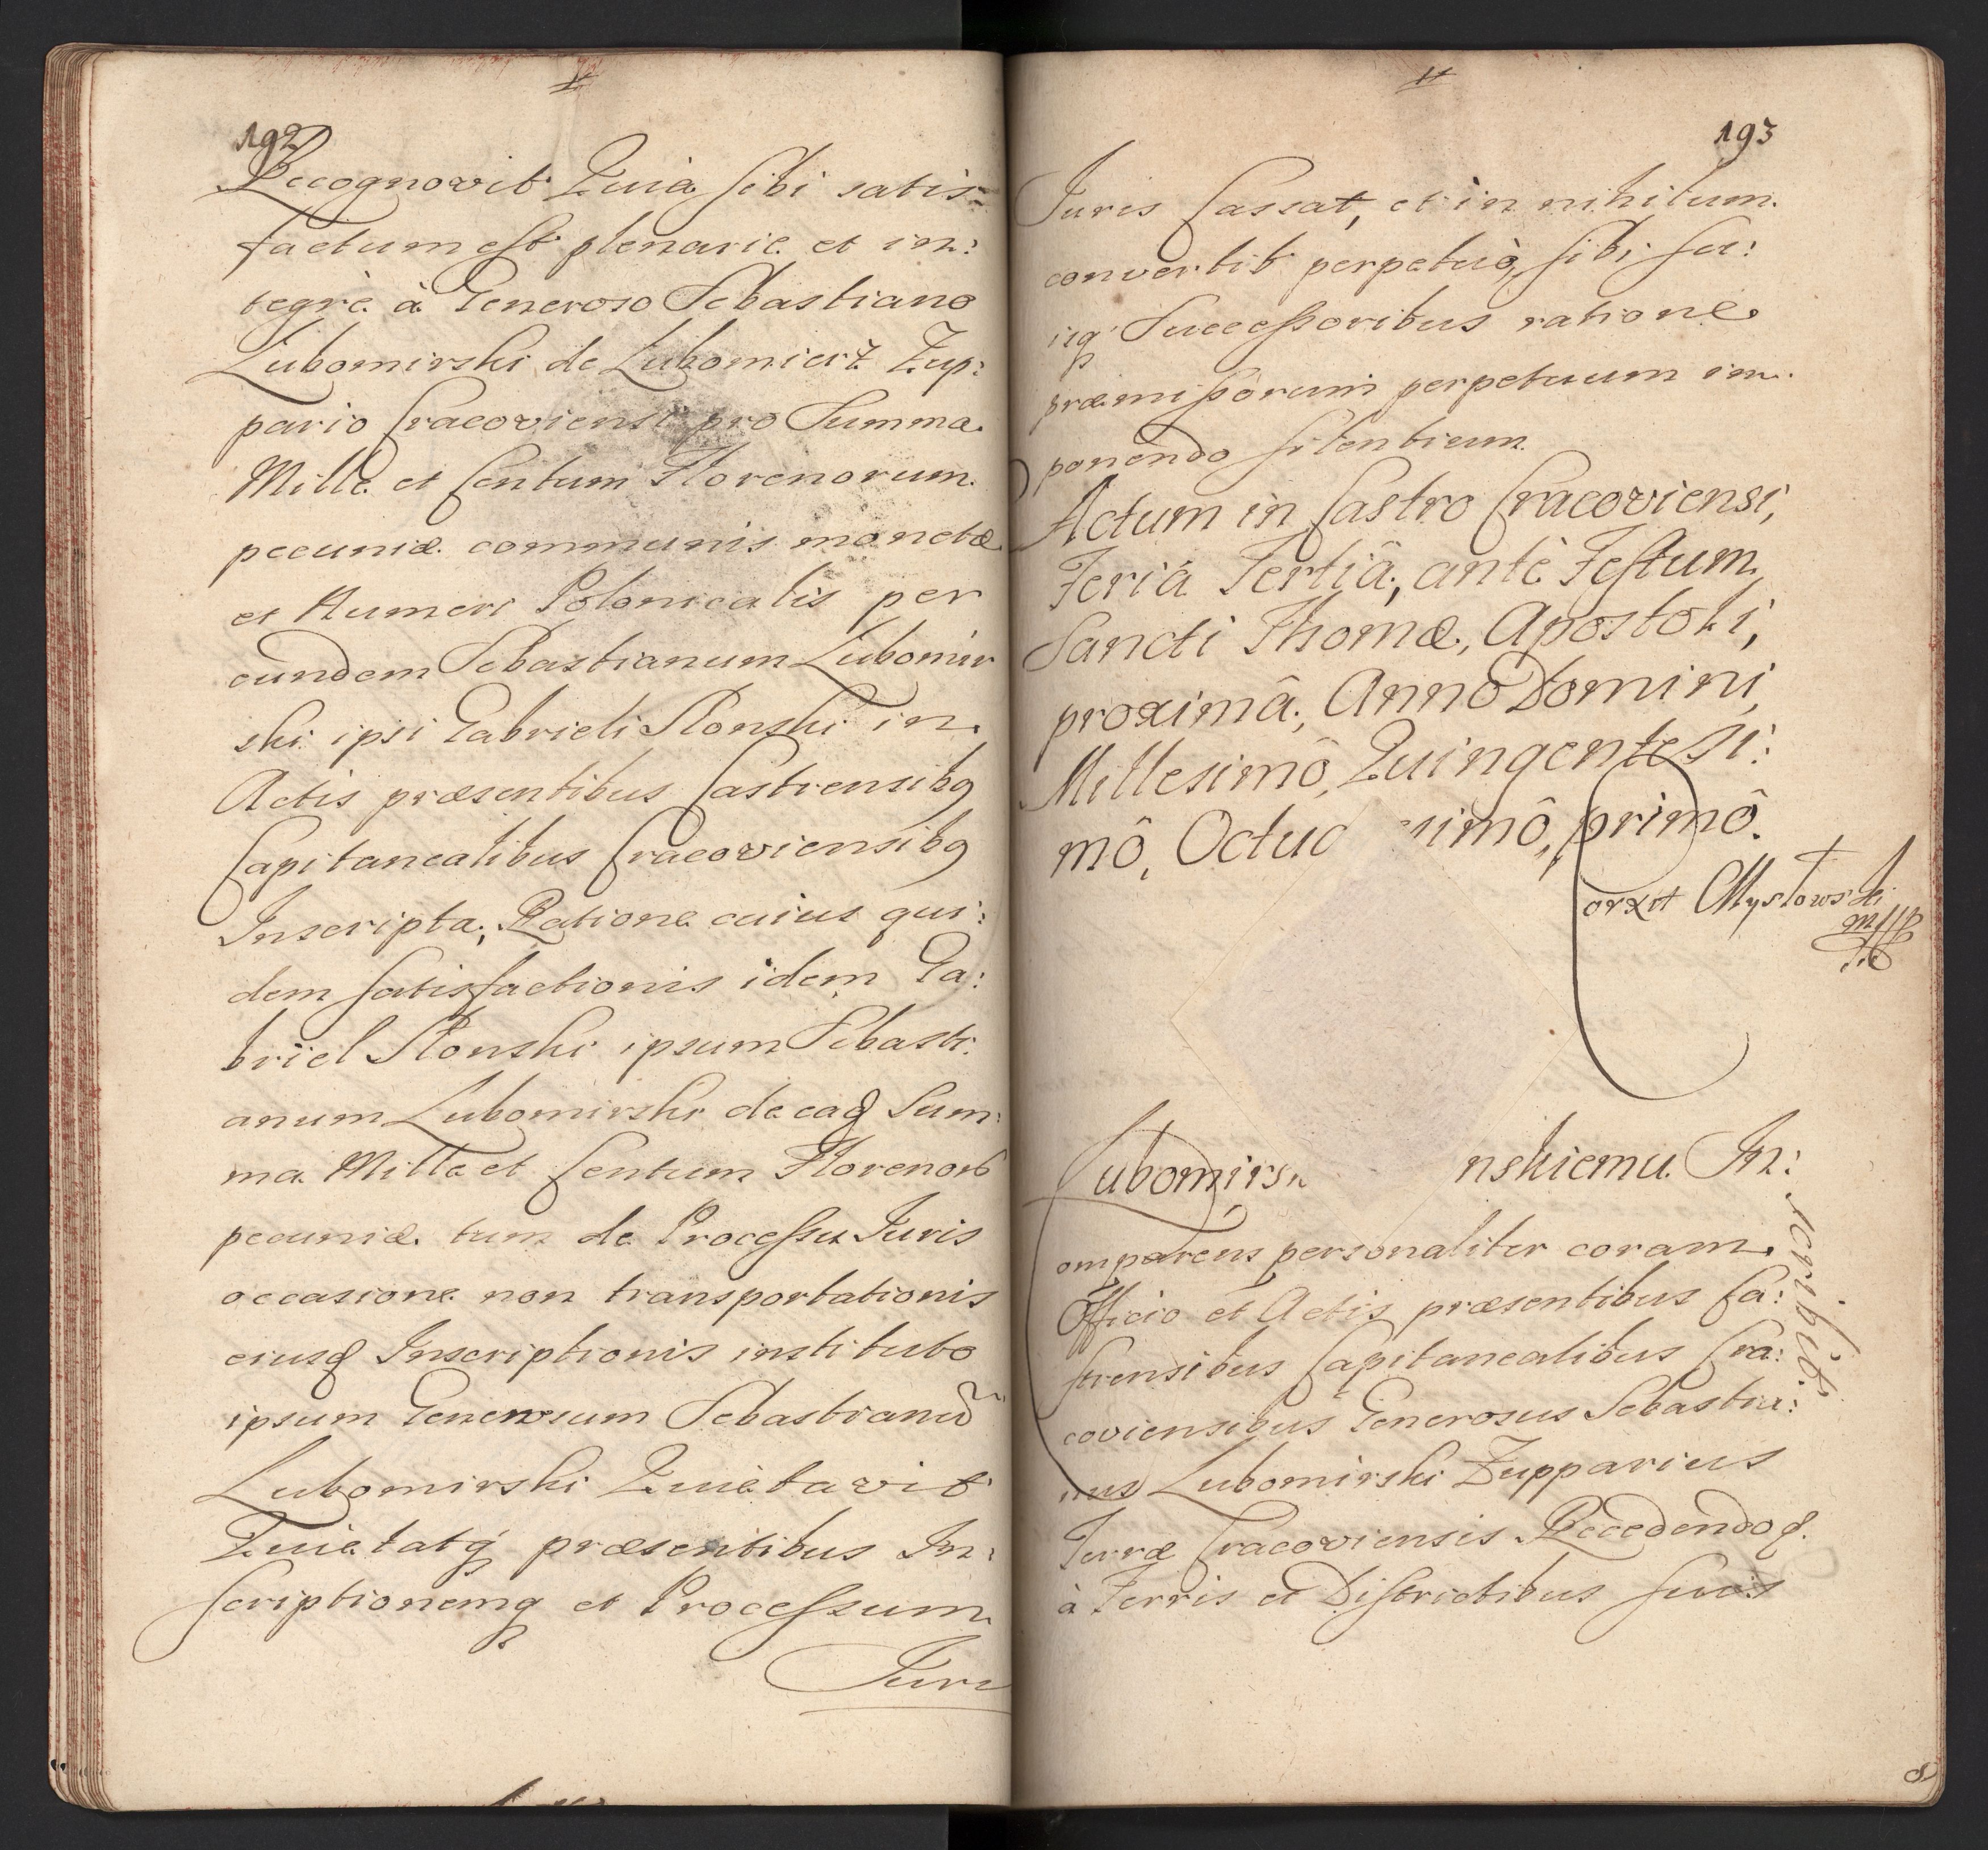 192
Recognovit Quia sibi satis-
factum est plenarie et in:
tegrè à Generoso Sebastiano
Lubomirski de Lubomierz Zup:
pario Cracoviensi pro Summa
Mille et Centum Florenorum
pecuniæ communis monetæ
et Numeri Polonicalis per
eundem Sebastianum Lubomir
ski ipsi Gabrieli Slonski in
Actis præsentibus Castrensibq
Capitanealibus Cracoviensibq
Inscripta, Ratione cuius qui:
dem satisfactionis idem Ga:
briel Slonski ipsum Sebasti:
anum Lubomirski de eadē Sum:
ma Mille et Centum Floreno
pecuniæ tum de Processu Juris
occasione non transportationis
eiusd Inscriptionis instituto
ipsum Generosum Sebastianū
Lubomirski Quietavit
Quietatq præsentibus In:
scriptionemq et Processum
Juri
193
Juris Cassat, et in nihilum
convertit perpetuò, sibi su:
isq Successoribus ratione
præmissorum perpetuum im
ponendo silentium.
Actum in Castro Cracoviensi,
Feriâ Tertiâ, antè Festum
Sancti Thomæ, Apostoli,
proximâ, Annô Domini,
Millesimô, Quingentesi:
mô, Octu simô, primô.
Corxit Mysłowski
mpp
Lubomirs nskiemu In:
scribit.
omparens personaliter coram
Officio et Actis præsentibus Ca:
strensibus Capitanealibus Cra:
coviensibus Generosus Sebastia:
nus Lubomirski Zupparius
Terræ Cracoviensis Recedendoq
à Terris et Districtibus suis